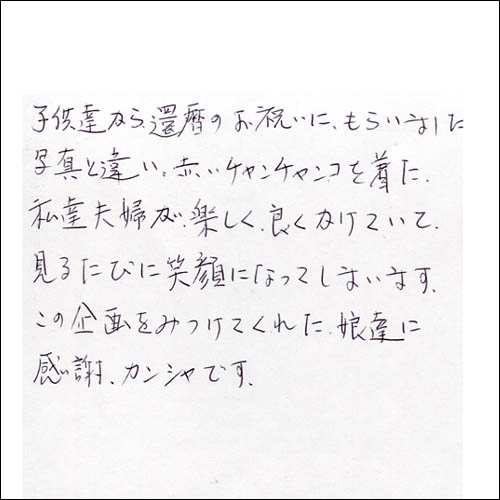 子供達から、還暦のお祝いに、もらいました
写真と違い、赤いチャンチャンコを着た、
私達夫婦が、楽しく、良くかけていて、
見るたびに笑顔になってしまいます。
この企画をみつけてくれた、娘達に
感謝、カンシャです。